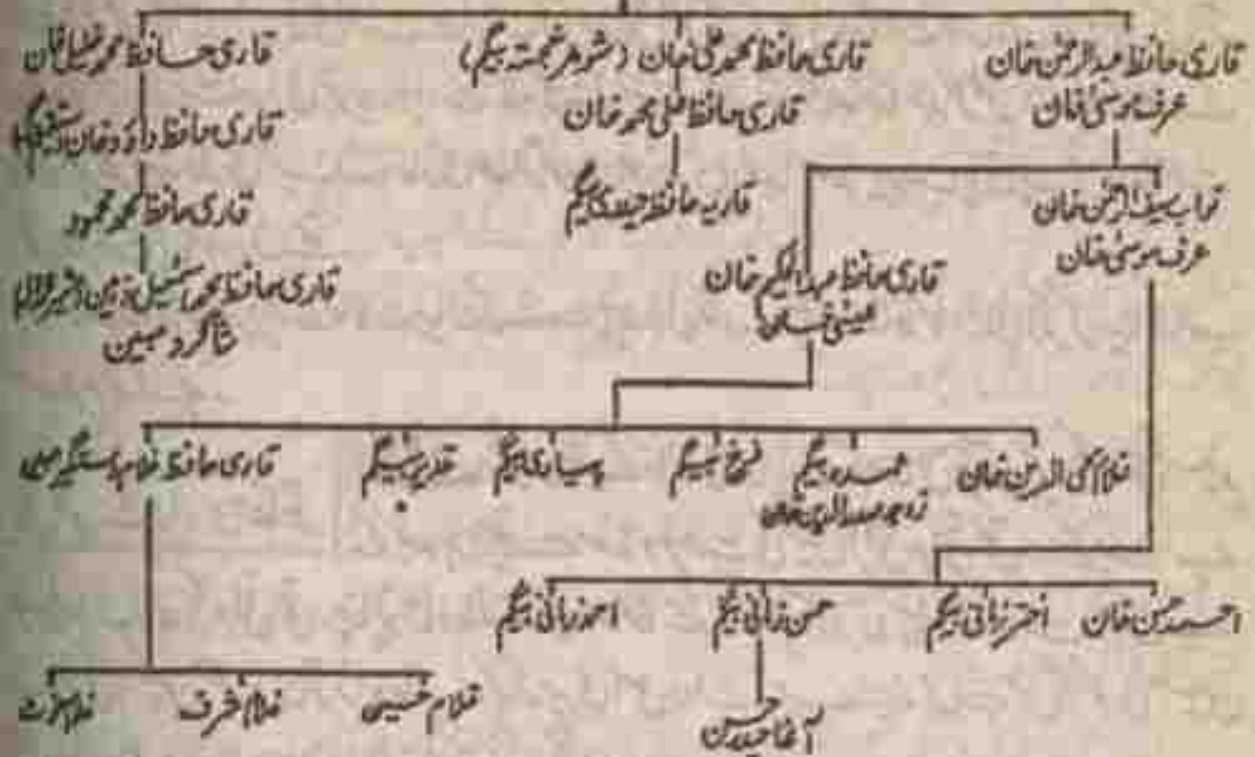 قاری حافظ عبدالرحمٰن خان
عرف موسیٰ خان
قاری حافظ محمد علی خان (شوہر خجستہ بیگم)
قاری حافظ علی محمد خان
قاریہ حافظہ حیدری بیگم
قاری حافظ محمد خلیل خان
قاری حافظ داؤد خان
قاری حافظ محمد محمود
قاری حافظ محمد اسمٰعیل
شاگرد مبین
نواب سیف الرحمٰن خان
عرف موسیٰ خان
قاری حافظ عبدالحکیم خان
عیسیٰ خان
غلام محی الدین خان
عمدہ بیگم
زوجہ صدرالدین خان
فرخ بیگم
پیاری بیگم
قدیر بیگم
قاری حافظ غلام دستگیر
احمد حسن خان
اختر زمانی بیگم
حسن زمانی بیگم
احمد زمانی بیگم
آغا حیدر حسن
غلام حسین
غلام شرف
غلام غوث